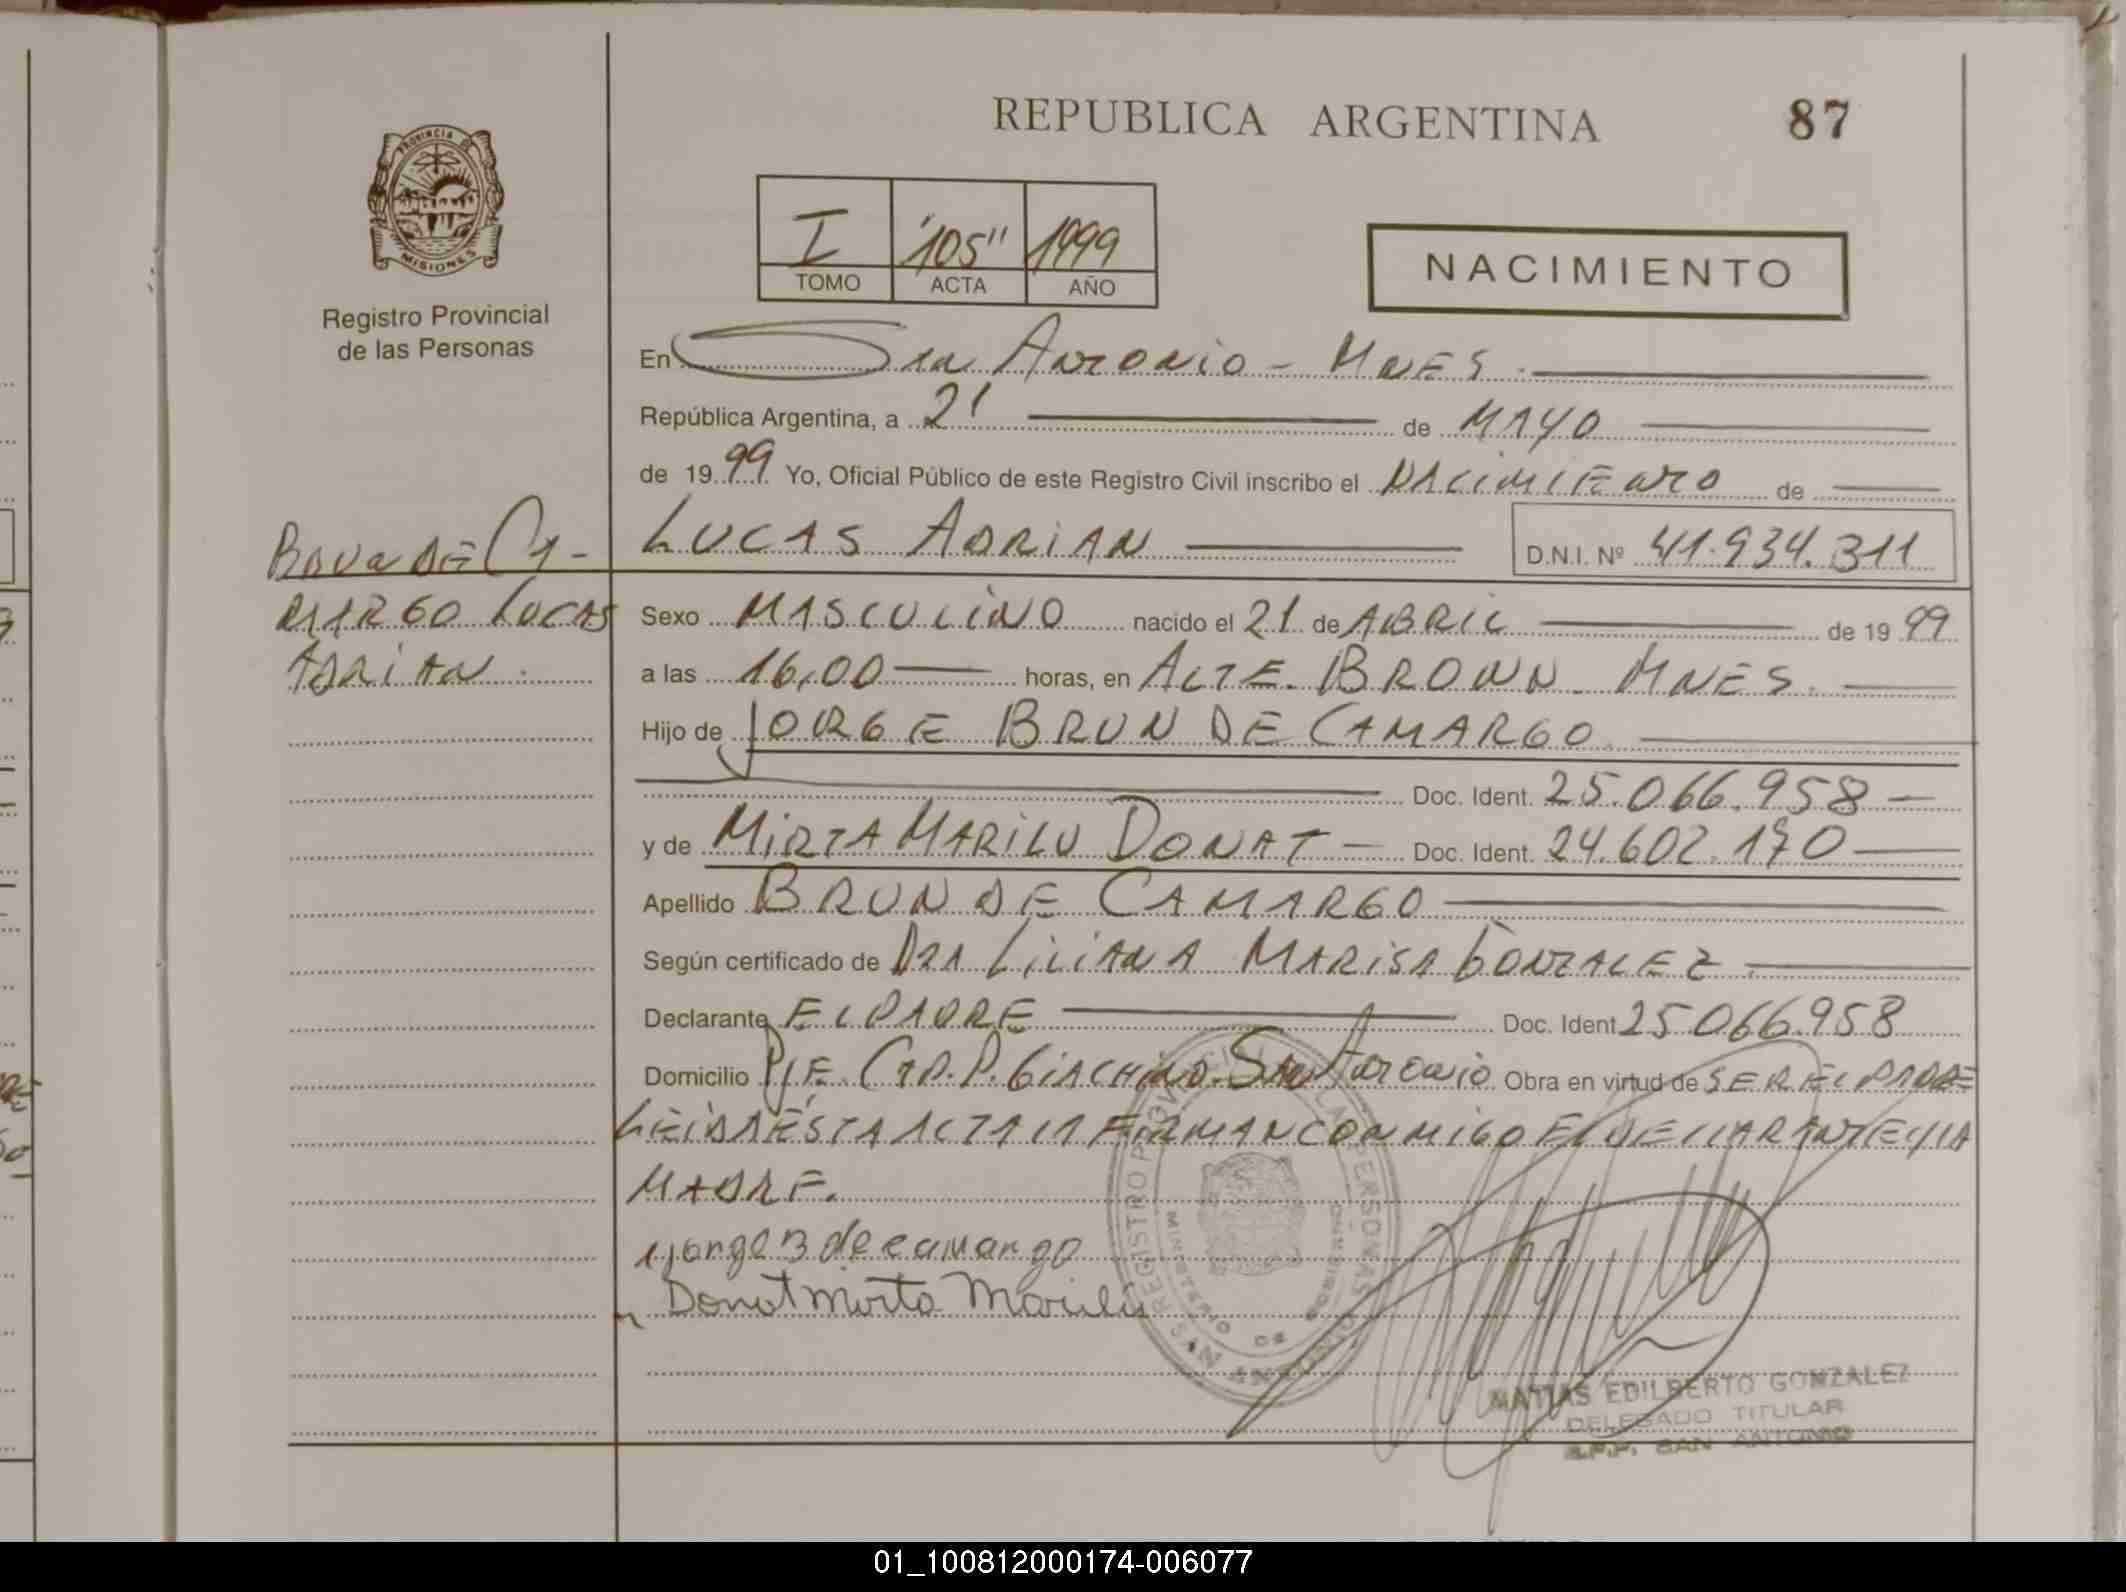 REPUBLICA ARGENTINA 87
PROVINCIA DE
MISIONES
Registro Provincial
de las Personas
I "105" 1999
TOMO ACTA AÑO
NACIMIENTO
En San Antonio - Mnes.
República Argentina, a 21 de MAYO
de 1999 Yo, Oficial Público de este Registro Civil inscribo el NACIMIENTO de
LUCAS ADRIAN D.N.I. Nº 41.934.311
BRUN DE CA-
MARGO LUCAS
ADRIAN.
Sexo MASCULINO nacido el 21 de ABRIL de 1999
a las 16,00 horas, en ALTE. BROWN - MNES.
Hijo de JORGE BRUN DE CAMARGO
Doc. Ident. 25.066.958 -
y de MIRTA MARILU DONAT - Doc. Ident. 24.602.170
Apellido BRUN DE CAMARGO
Según certificado de DRA LILIANA MARISA GONZALEZ.
Declarante EL PADRE Doc. Ident 25066.958
Domicilio PJE. CAP. P. GIACHINO. San Antonio Obra en virtud de SER EL PADRE
LEIDA ESTA ACTA LA FIRMAN CONMIGO EL DECLARANTE Y LA
MADRE.
Jorge B de camargo
Donat Mirta Marilú
REGISTRO PROVINCIAL DE LAS PERSONAS
MINISTERIO DE GOBIERNO
SAN ANTONIO
MATIAS EDILBERTO GONZALEZ
DELEGADO TITULAR
R.P.P. SAN ANTONIO
01_100812000174-006077